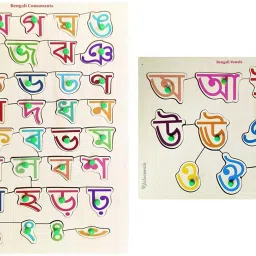 Bengali Consonants
খ গ ঘ ঙ
জ ঝ ঞ
ড ঢ ণ
দ ধ ন
ব ভ ম
ল ব শ
হ ড় ঢ়
ং ঃ ঁ
Bengali Vowels
অ আ
উ ঊ
ও ঔ